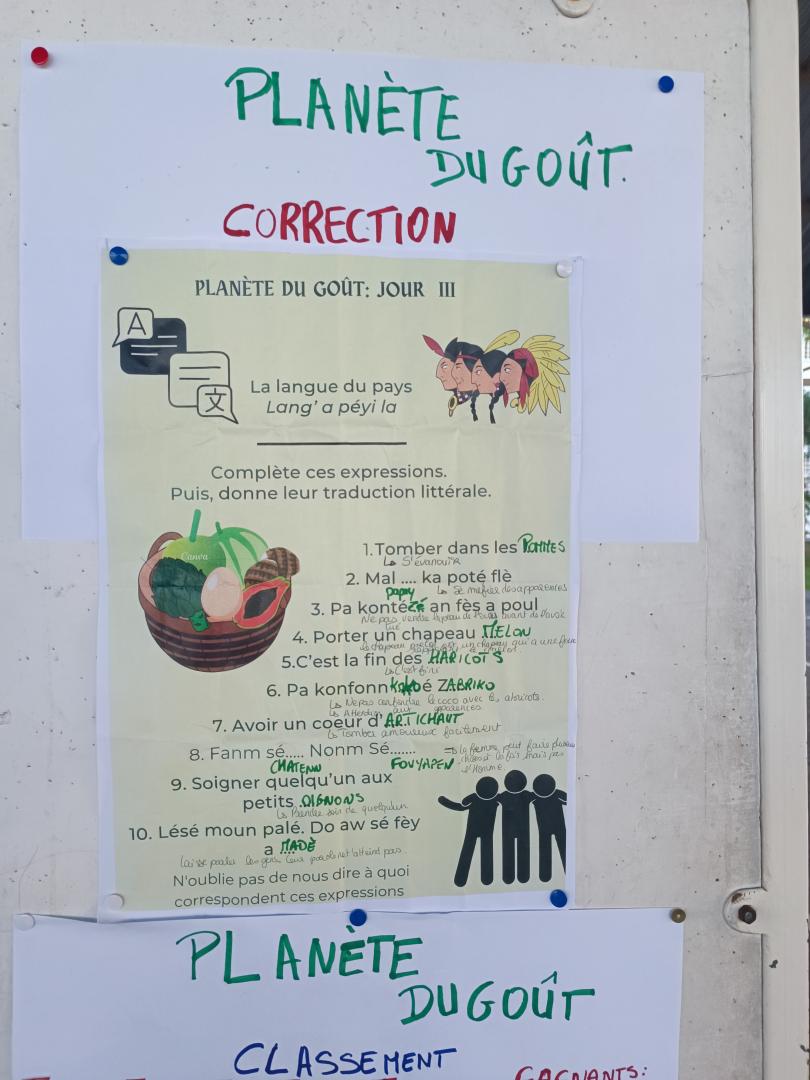 PLANÈTE
DU GOÛT.
CORRECTION
PLANÈTE DU GOÛT: JOUR III
A
文
La langue du pays
Lang' a péyi la
Complète ces expressions.
Puis, donne leur traduction littérale.
Canva
1.Tomber dans les POMMES
↳ S'évanouir
2. Mal .... ka poté flè
papay ↳ Se méfier des apparences
3. Pa konté zé an fès a poul
Ne pas vendre la peau de l'ours avant de l'avoir
tué
4. Porter un chapeau MELON
un chapeau qui a une forme
5.C'est la fin des HARICOTS
↳ C'est fini
6. Pa konfonn koko é ZABRIKO
↳ Ne pas confondre le coco avec les abricots.
↳ Attention aux apparences
7. Avoir un coeur d'ARTICHAUT
↳ Tomber amoureux facilement
8. Fanm sé..... Nonm Sé.......
CHATENN FOUYAPEN
⇒ la femme peut faire plusieurs
choses à la fois mais pas
l'Homme
9. Soigner quelqu'un aux
petits OIGNONS
↳ Prendre soin de quelqu'un
10. Lésé moun palé. Do aw sé fèy
a MADÈ
Laisse parler les gens, leur parole ne t'atteind pas.
N'oublie pas de nous dire à quoi
correspondent ces expressions
PLANÈTE
DU GOÛT
CLASSEMENT
GAGNANTS: